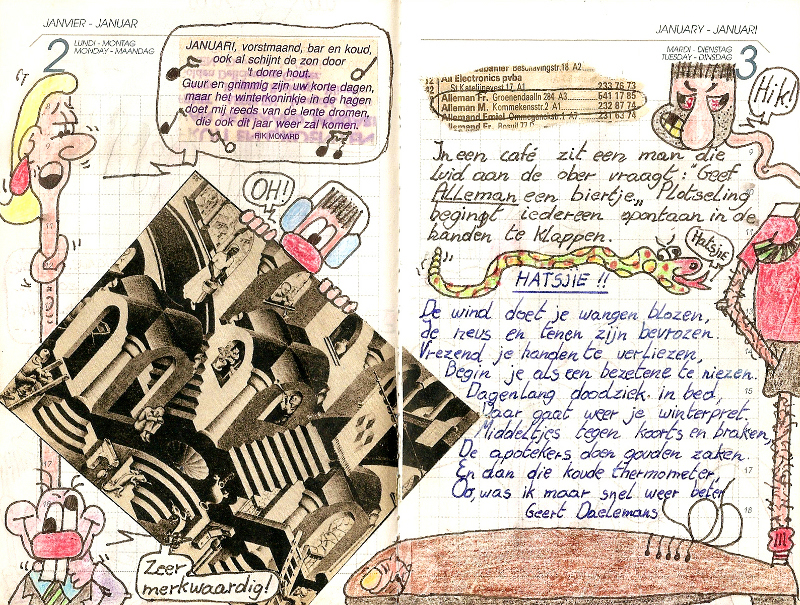 JANVIER - JANUAR
2
LUNDI - MONTAG
MONDAY - MAANDAG
JANUARI, vorstmaand, bar en koud,
ook al schijnt de zon door
't dorre hout.
Guur en grimmig zijn uw korte dagen,
maar het winterkoninkje in de hagen
doet mij reeds van de lente dromen,
die ook dit jaar weer zal komen.
RIK MONARD
OH!
Zeer
merkwaardig!
JANUARY - JANUARI
MARDI - DIENSTAG
TUESDAY - DINSDAG
3
Hik!
Beschavingstr.18 A2
All Electronics pvba
St Katelijnevest 17 A1 233 76 73
Alleman Fr. Groenendaalln 284 A3 541 17 85
Alleman M. Kommekensstr.2 A1 232 87 74
Allemand Emiel Ommeganckstr.1 A7 231 63 74
In een café zit een man die
luid aan de ober vraagt: "Geef
ALLEMAN een biertje„ Plotseling
begingt iedereen spontaan in de
handen te klappen.
Hatsjie
HATSJIE!!
De wind doet je wangen blozen,
Je neus en tenen zijn bevrozen.
Vrezend je handen te verliezen,
Begin je als een bezetene te niezen.
Dagenlang doodziek in bed,
Daar gaat weer je winterpret.
Middeltjes tegen koorts en braken,
De apotekers doen gouden zaken.
En dan die koude thermometer,
Oo, was ik maar snel weer beter
Geert Daelemans
8
9
11
14
15
17
17
18